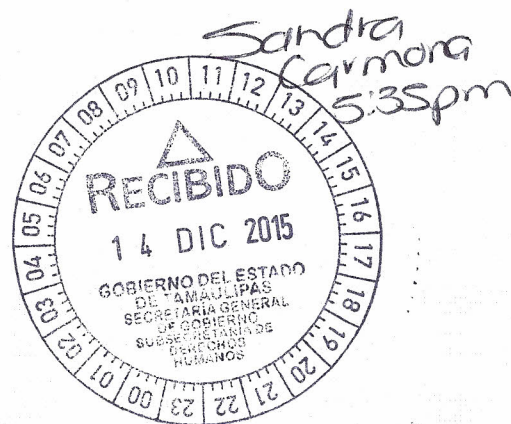 Sandra
Carmona
5:35pm
00 01 02 03 04 05 06 07 08 09 10 11 12 13 14 15 16 17 18 19 20 21 22 23
RECIBIDO
14 DIC 2015
GOBIERNO DEL ESTADO
DE TAMAULIPAS
SECRETARIA GENERAL
DE GOBIERNO
SUBSECRETARIA DE
DERECHOS
HUMANOS